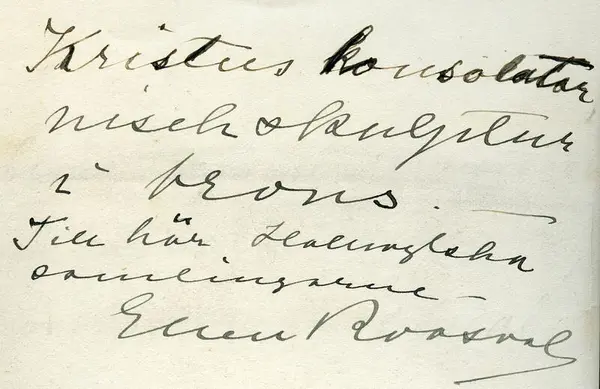 Kristus konsolator
nisch skulptur
i brons.
Till här Hallwylska
samlingarne
Ellen Roosval